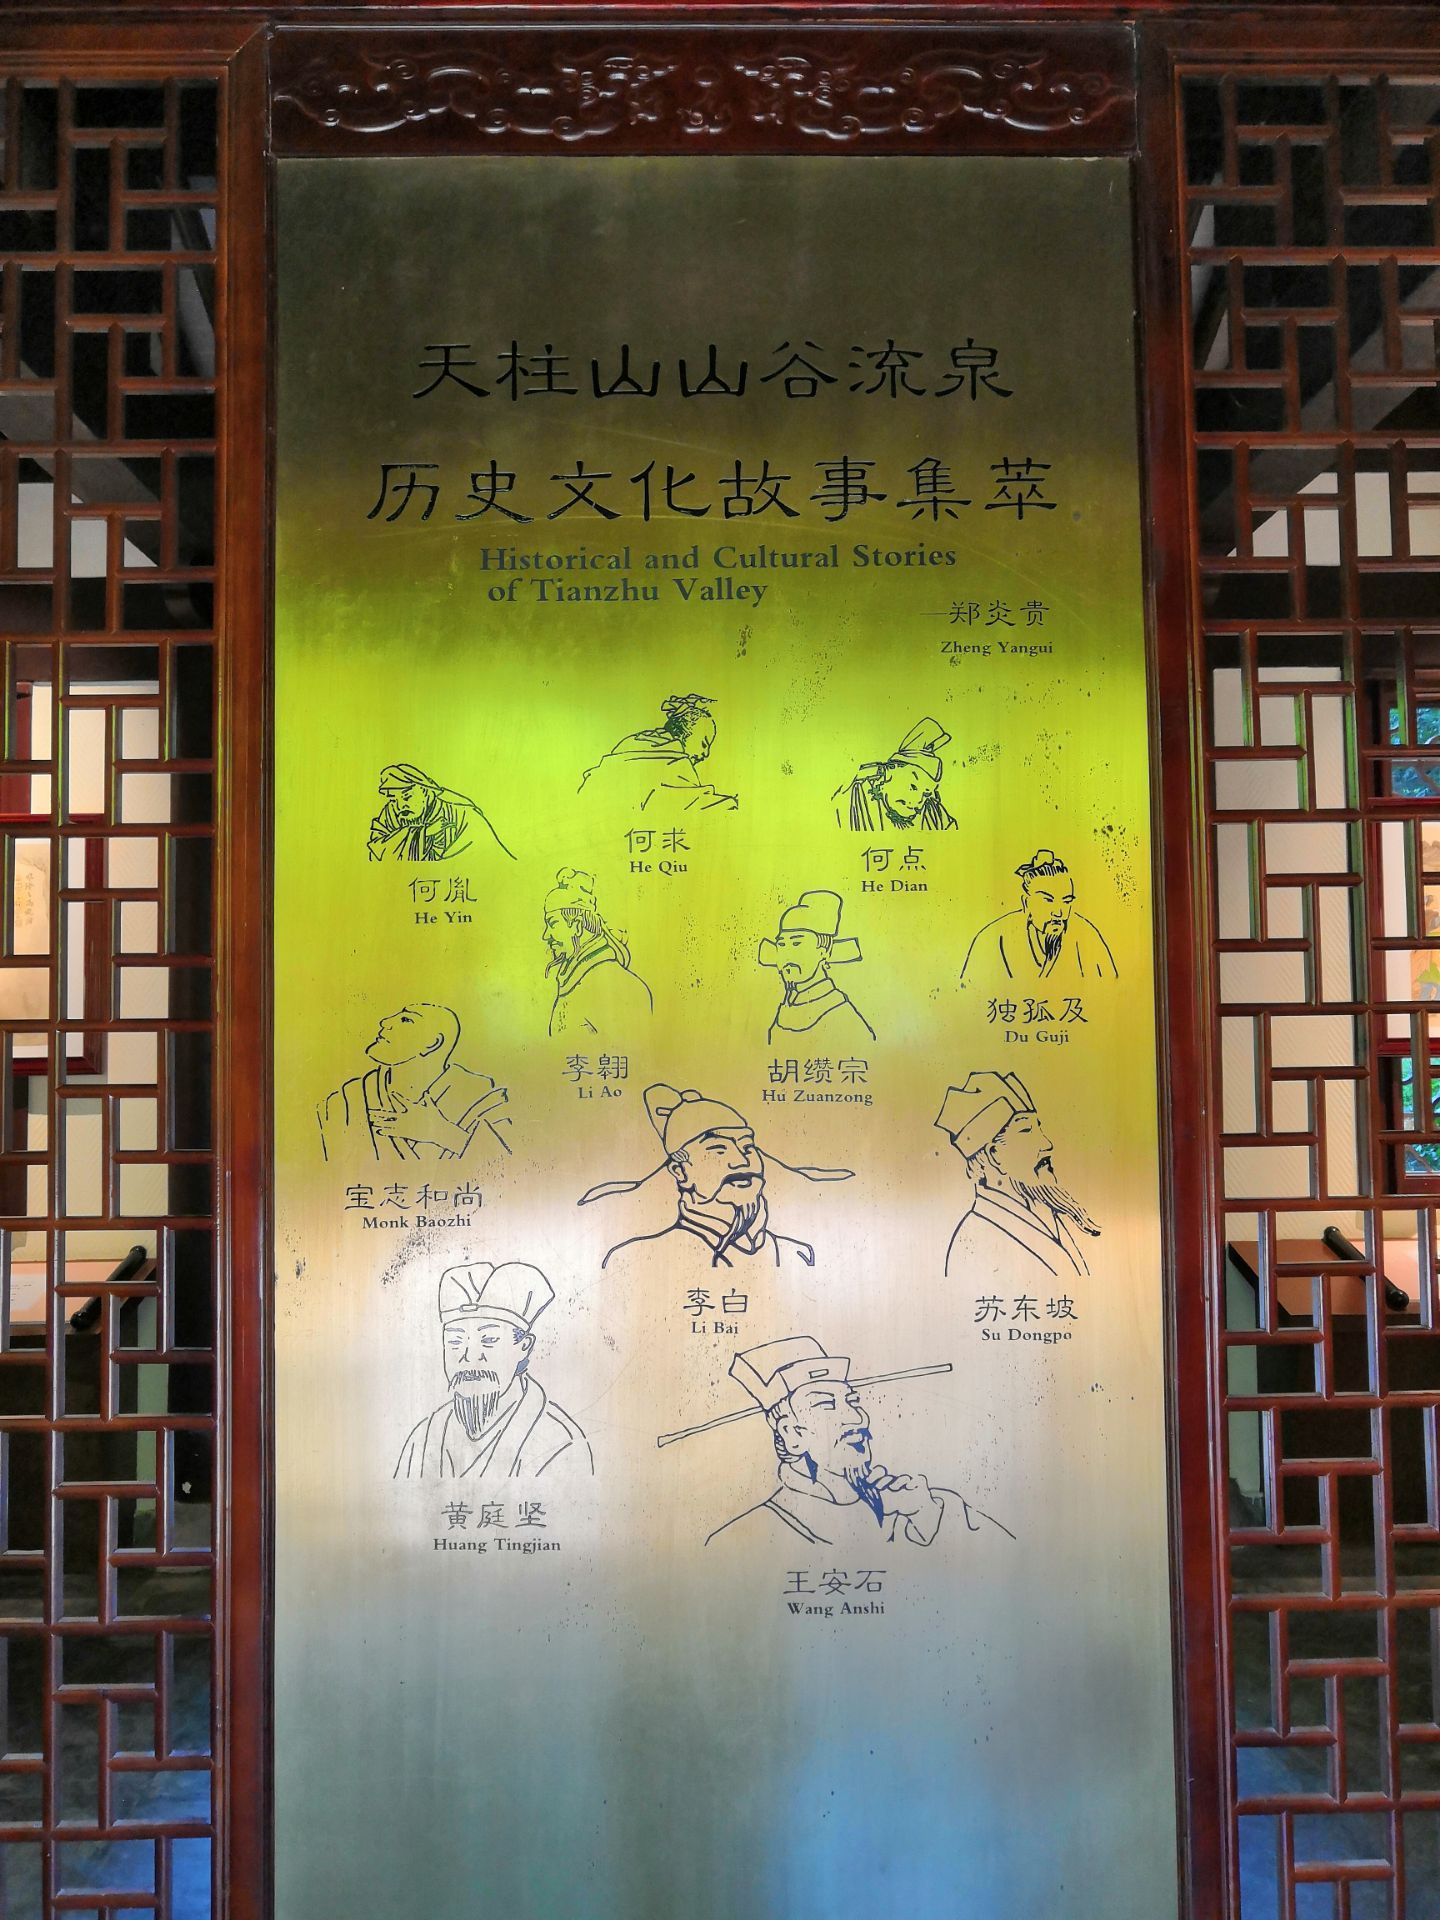 天柱山山谷流泉
历史文化故事集萃
Historical and Cultural Stories
of Tianzhu Valley
—郑炎贵
Zheng Yangui
何求
He Qiu
何点
He Dian
何胤
He Yin
独孤及
Du Guji
李翱
Li Ao
胡缵宗
Hu Zuanzong
宝志和尚
Monk Baozhi
李白
Li Bai
苏东坡
Su Dongpo
黄庭坚
Huang Tingjian
王安石
Wang Anshi